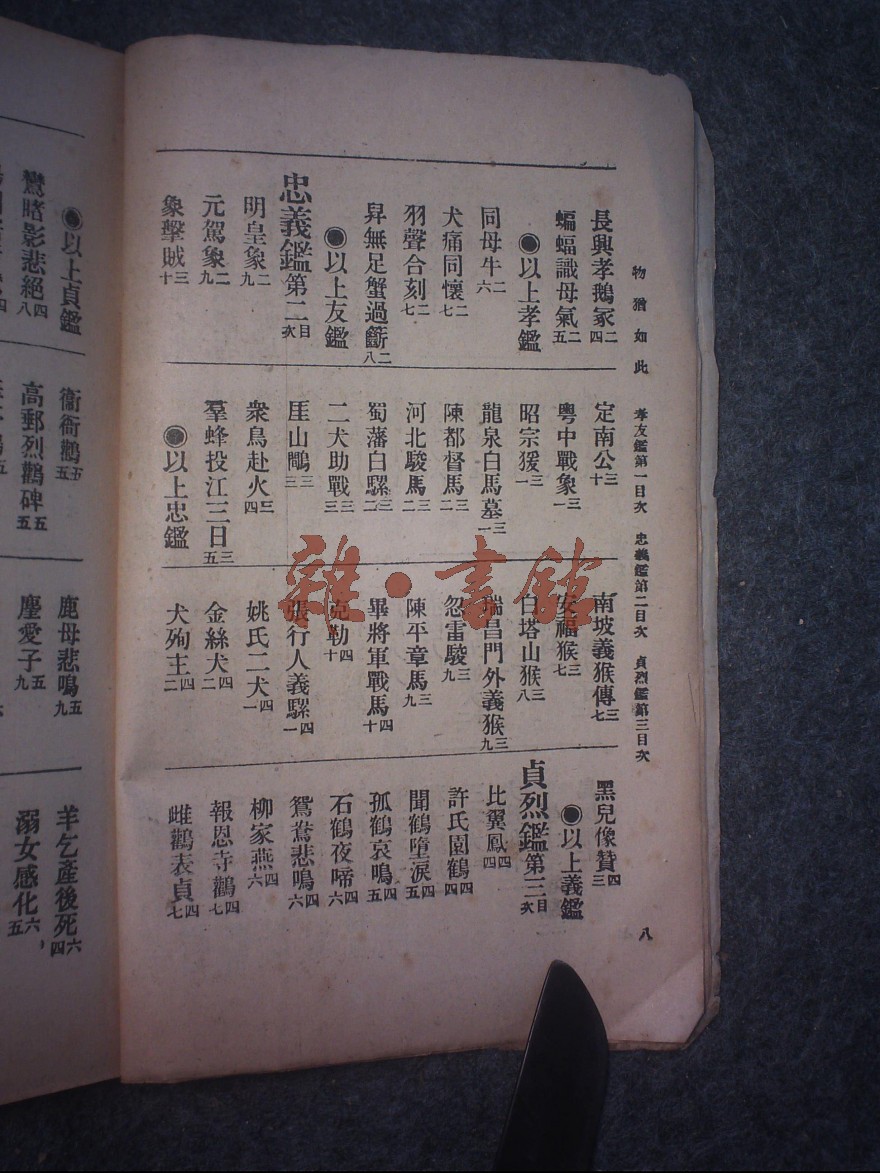 物猶如此 孝友鑑第一目次 忠義鑑第二目次 貞烈鑑第三目次
八
長興孝鵝冢二四
蝙蝠識母氣二五
●以上孝鑑
同母牛二六
犬痛同懷二七
羽聲合刻二七
昇無足蟹過籪二八
●以上友鑑
忠義鑑第二目次
明皇象二九
元駕象二九
象擊賊三十
定南公三十
粵中戰象三一
昭宗猨三一
龍泉白馬墓三一
陳都督馬三二
河北駿馬三二
蜀藩白騾三二
二犬助戰三三
厓山鷴三三
衆鳥赴火三四
羣蜂投江三日三五
●以上忠鑑
南坡義猴傳三七
安福猴三七
白塔山猴三八
瑞昌門外義猴三九
忽雷駿三九
陳平章馬三九
畢將軍戰馬四十
克勒四十
張行人義騾四一
姚氏二犬四一
金絲犬四二
犬殉主四二
黑兒像贊四三
●以上義鑑
貞烈鑑第三目次
比翼鳳四四
許氏園鶴四四
聞鶴墮淚四五
孤鶴哀鳴四五
石鶴夜啼四六
鴛鴦悲鳴四六
柳家燕四六
報恩寺鸛四七
雌鸛表貞四七
●以上貞鑑
鸞睹影悲絕四八
衞衙鸛五五
高郵烈鸛碑五五
鹿母悲鳴五九
麈愛子五九
羊乞產後死六四
溺女感化六五
雜·書館